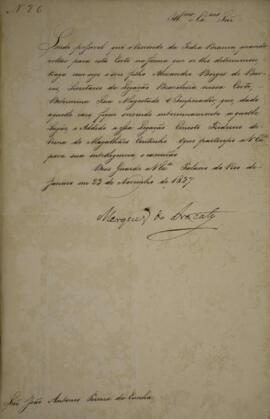 N. 26
Illmo. Exmo. Snr.
Sendo possivel que o Visconde da Pedra Branca, quando
voltar para esta Corte na forma que se lhe determinou
traga comsigo o seo filho Alexandre Borges de Bar-
ros, Secretario da Legação Brasileira nessa Corte,
Determina Sua Magestade o Imperador, que, dado
aquelle caso fique servindo interinamente aquelle
lugar, o Addido a essa Legação Ernesto Frederico de
Verna de Magalhães Coutinho. O que participo a V. Exa.
para sua intelligencia e execução
Deos Guarde a V. Exa. Palacio do Rio de
Janeiro em 23 de Novembro de 1827
Marquez do Aracaty
Snr. João Antonio Pereira da Cunha